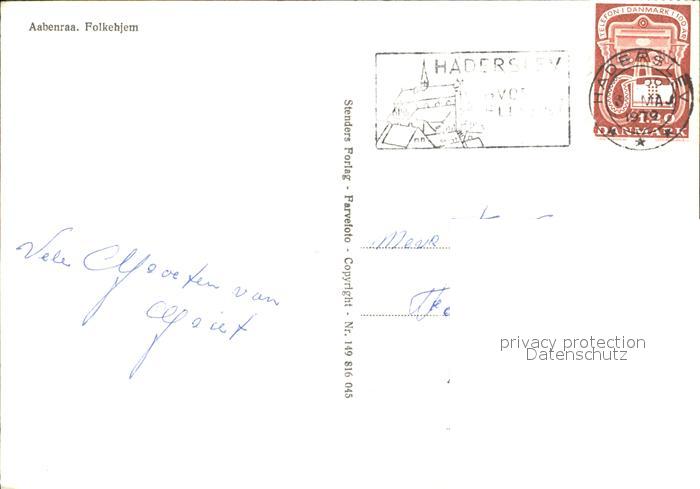 Aabenraa. Folkehjem
HADERSLEV
TELEFON I DANMARK I 100 ÅR
HADERSLEV
MAJ
1979
DANMARK
Stenders Forlag - Farvefoto - Copyright - Nr. 149 816 045
Vele Groeten van
Mevr
privacy protection
Datenschutz